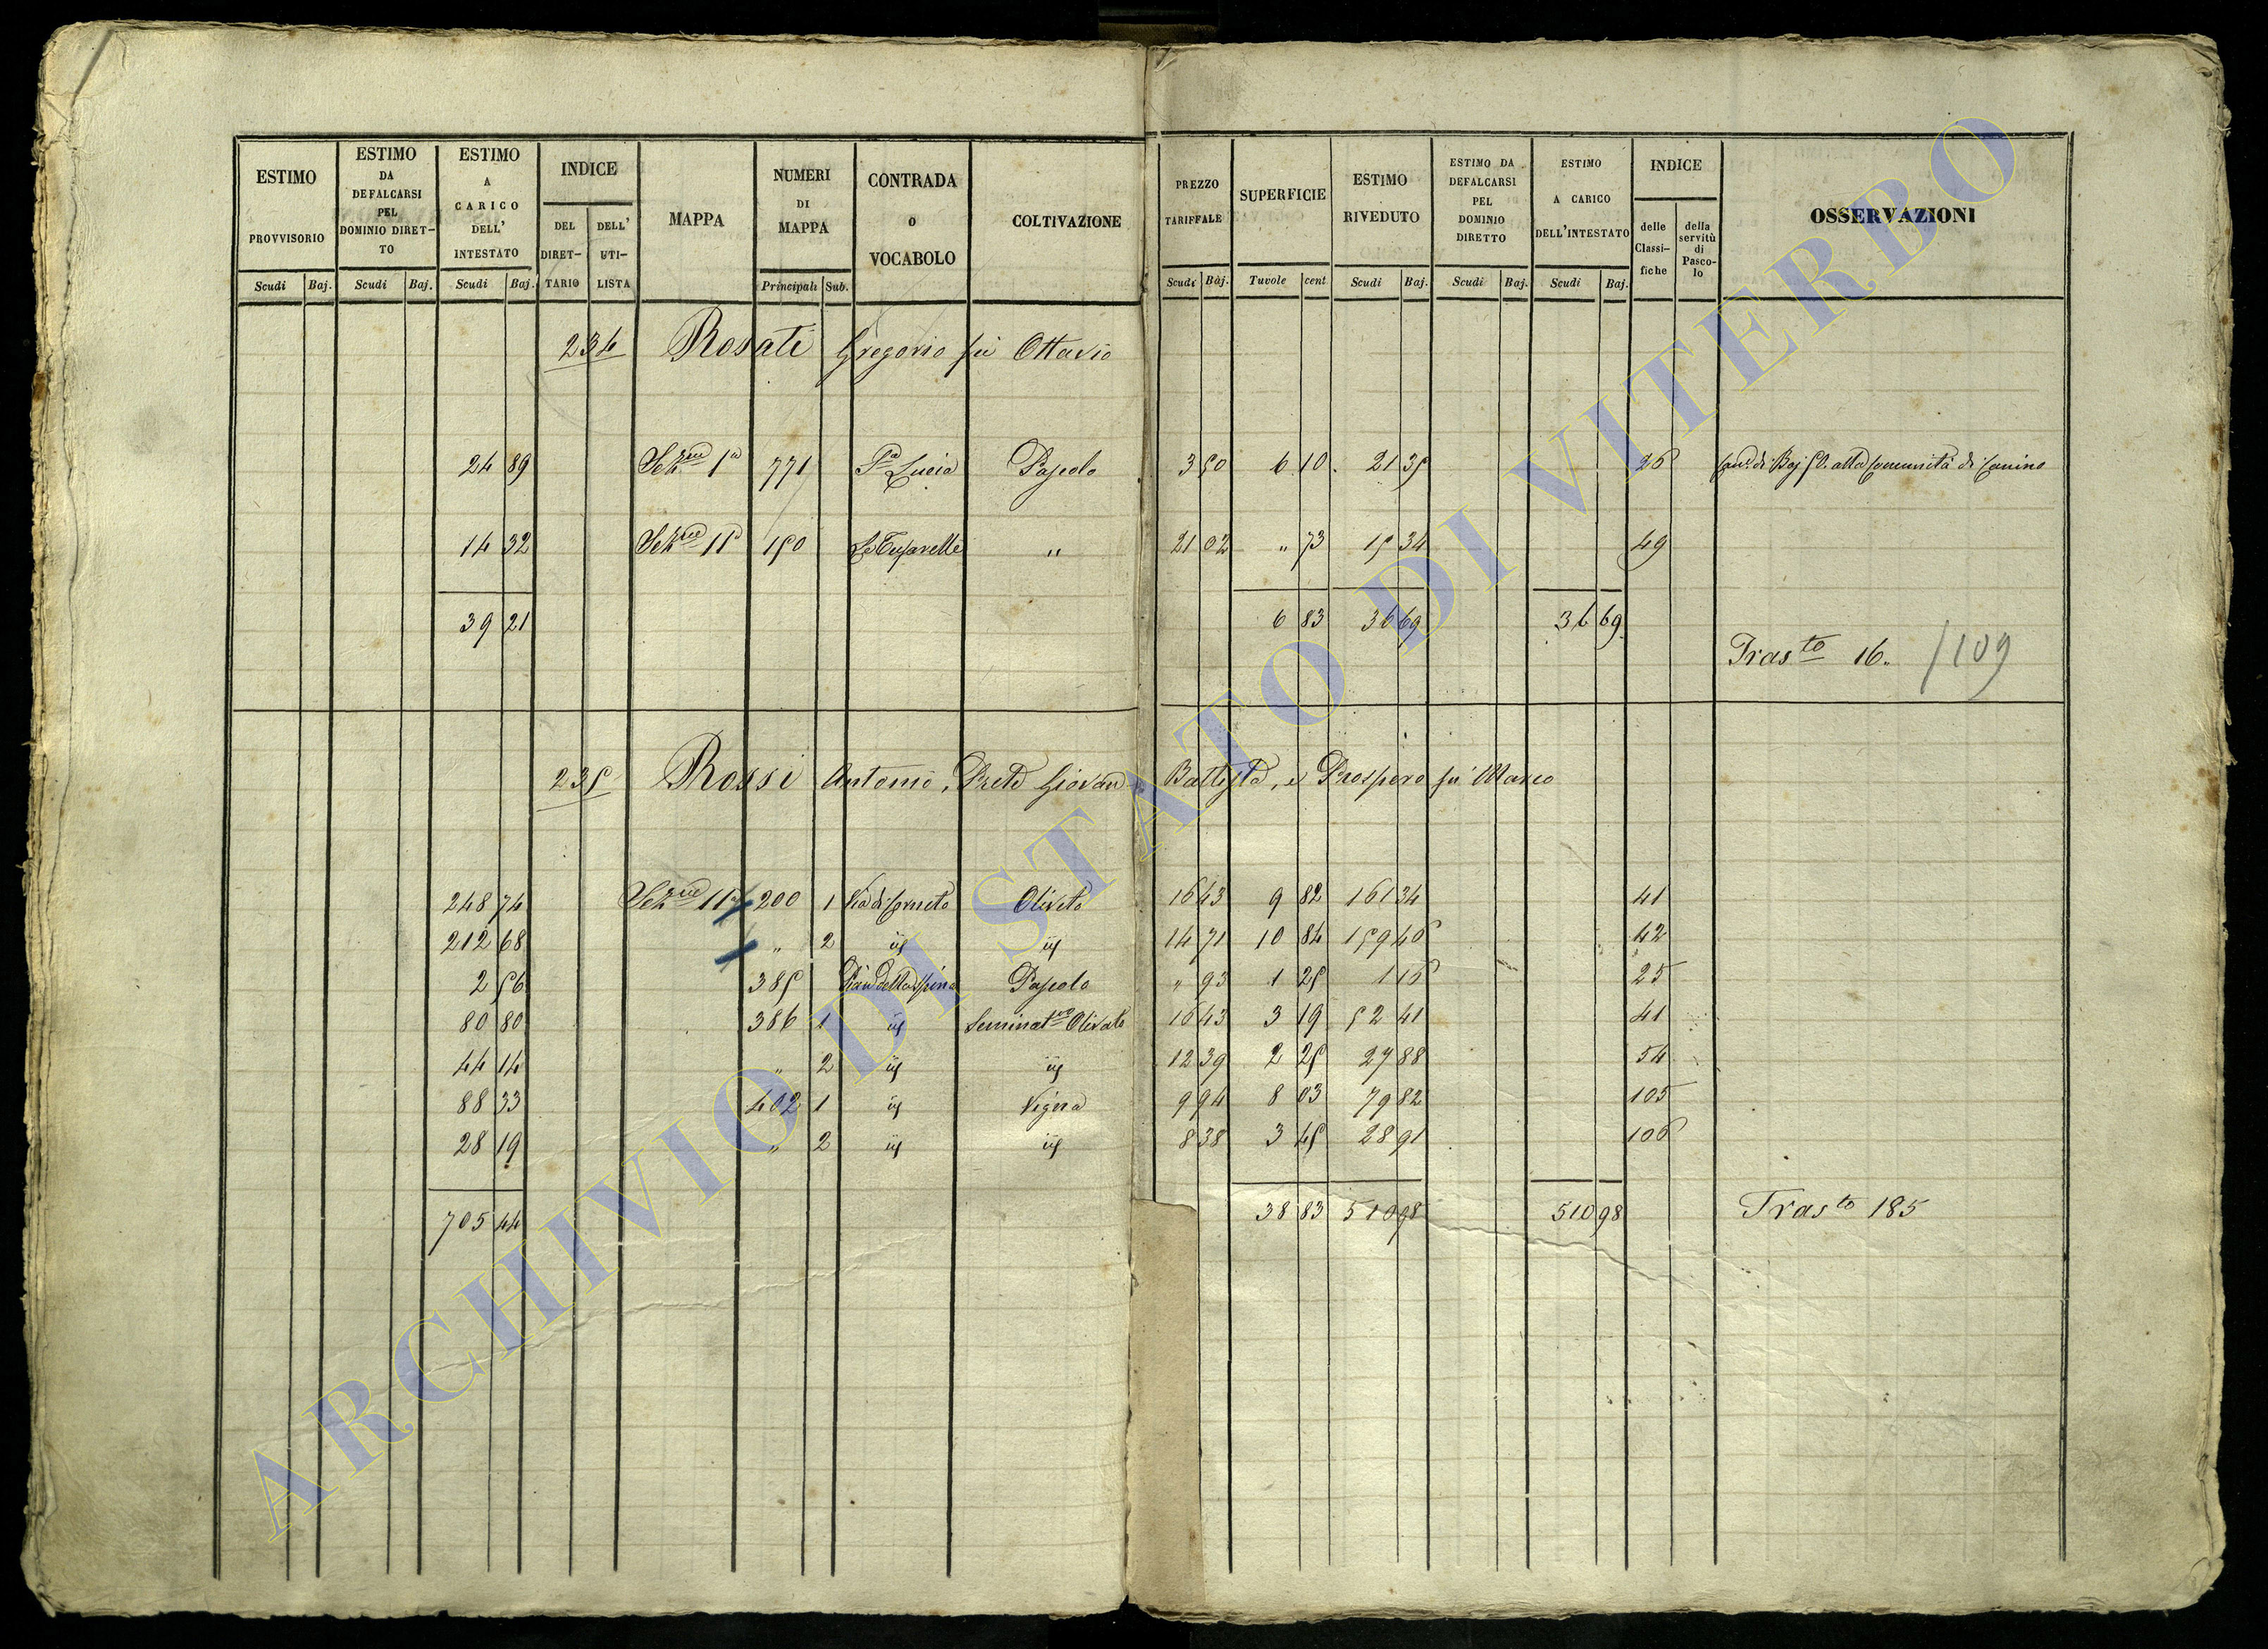 ESTIMO PROVVISORIO Scudi Baj. ESTIMO DA DEFALCARSI PEL DOMINIO DIRET-TO Scudi Baj. ESTIMO A CARICO DELL' INTESTATO Scudi Baj. INDICE DEL DIRET-TARIO DELL' UTI-LISTA MAPPA NUMERI DI MAPPA Principali Sub. CONTRADA O VOCABOLO COLTIVAZIONE PREZZO TARIFFALE Scudi Baj. SUPERFICIE Tuvole cent ESTIMO RIVEDUTO Scudi Baj. ESTIMO DA DEFALCARSI PEL DOMINIO DIRETTO Scudi Baj. ESTIMO A CARICO DELL'INTESTATO Scudi Baj. INDICE delle Classi-fiche della servitù di Pasco-lo OSSERVAZIONI
234 Rosati Gregorio fu Ottavio
24 89 Sezne 1a 771 Sa Lucia Pascolo 3 50 6 10 21 35 26 Can. di Baj 50 alla Comunità di Canino
14 32 Sezne 11a 150 Le Tufarelle " 21 02 " 73 15 34 49
39 21 6 83 36 69 36 69
Trasto 16. /109
235 Rossi Antonio, Prete Giovan Battista, e Prospero fu Marco
248 74 Sezne 11a 200 1 Via di Corneto Oliveto 16 43 9 82 161 34 41
212 68 " 2 id id 14 71 10 84 159 46 42
2 56 385 Pian della Spina Pascolo " 93 1 25 1 16 25
80 80 386 1 id Seminat.vo Olivato 16 43 3 19 52 41 41
44 14 " 2 id id 12 39 2 25 27 88 54
88 33 402 1 id Vigna 9 94 8 03 79 82 105
28 19 " 2 id id 8 38 3 45 28 91 106
705 44 38 83 510 98 510 98 Trasto 185
ARCHIVIO DI STATO DI VITERBO